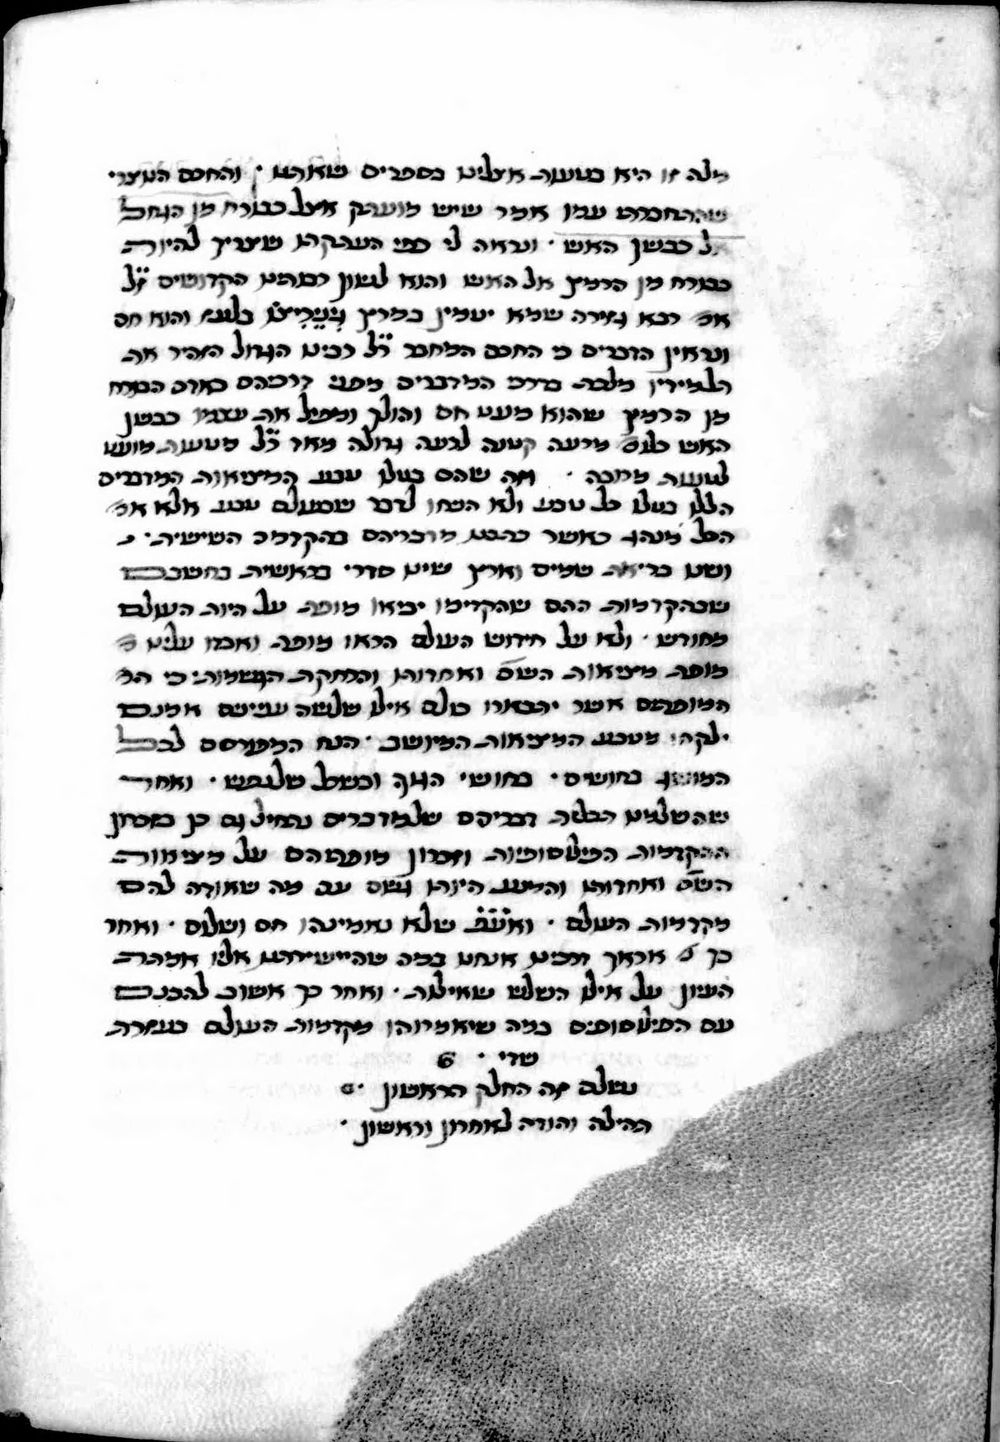 מלה זו היא בטעות אצלינו בספרים שאותנו · והחכם הנוצרי
שהתחברתי עמו אמר שיש מועתק אצל כבורח מן הנחל
אל כבשן האש · ונראה לי כפי העתקתו שצריך להיות
כבורח מן הרמץ אל האש והוא לשון רבותינו הקדושים ז״ל
אמ׳ רבא גזירה שמא יטמין ברמץ בלעז והוא חם
ונראין הדברים כי החכם המחבר ז״ל רבינו הגדול הזהיר את
תלמידיו מלכת בדרך המדברים מפני דרכיהם כאדם הבורח
מן הרמץ שהוא מעט חם והולך ומפיל את עצמו כבשן
האש כלומ׳ מרעה קטנה לרעה גדולה מאד ז״ל מטעות מועט
לטעות מרובה · וזה שהם בטלו טבע המציאות המדברים
הללו בטלו כל טבע ולא הניחו לדבר שבעולם טבע אלא אמ׳
הכל מנהג כאשר כתבנו מדבריהם בהקדמה השישית ·
ושנו בריאת שמים וארץ שינו סדרי בראשית בחשבם
שבהקדמות ההם שהקדימו יביאו מופת על היות העולם
מחודש · ולא על חידוש העולם הביאו מופת ואבדו עלינו
מופת מציאות השם ואחדותו והרחקת הגשמות · כי
המופתים אשר יתבארו בהם אילו שלשה עניינים אמנם
ילקחו מטבע המציאות המיושב · הנח המפורסם לכל
המושג בחושים · בחושי הגוף ובשכל שלנפש · ואחר
שהשלמנו תכלית דבריהם שלמדברים נתחיל גם כן בזכרון
ההקדמות הפילוסופיות וזכרון מופתיהם על מציאות
השם ואחדותו והמנע היותו גשם עם מה שאודה להם
מקדמות העולם · ואע״פ שלא נאמינהו חס ושלום · ואחר
כך אראך דרכינו אנחנו במה שהיישירתנו אליו אמתת
העיון על אילו השלש שאילות · ואחר כך אשוב להכנס
עם הפילוסופים במה שיאמרוהו מקדמות העולם בעזרת
שדי ·
נשלם זה החלק הראשון ·
תהילה והודה לאחרון וראשון ·